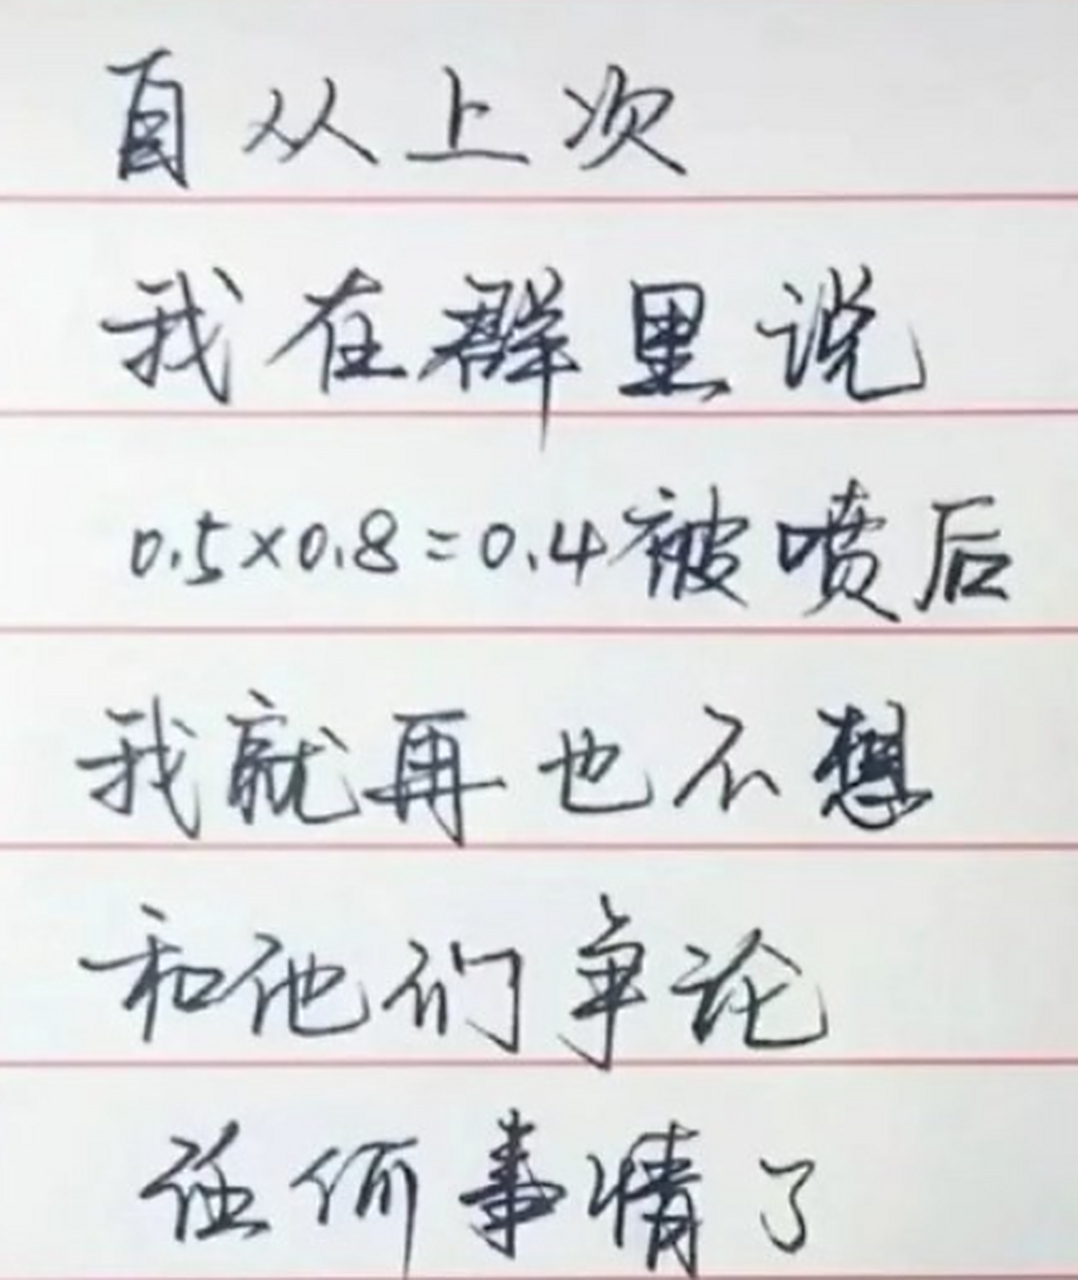 自从上次
我在群里说
0.5×0.8=0.4被喷后
我就再也不想
和他们争论
任何事情了